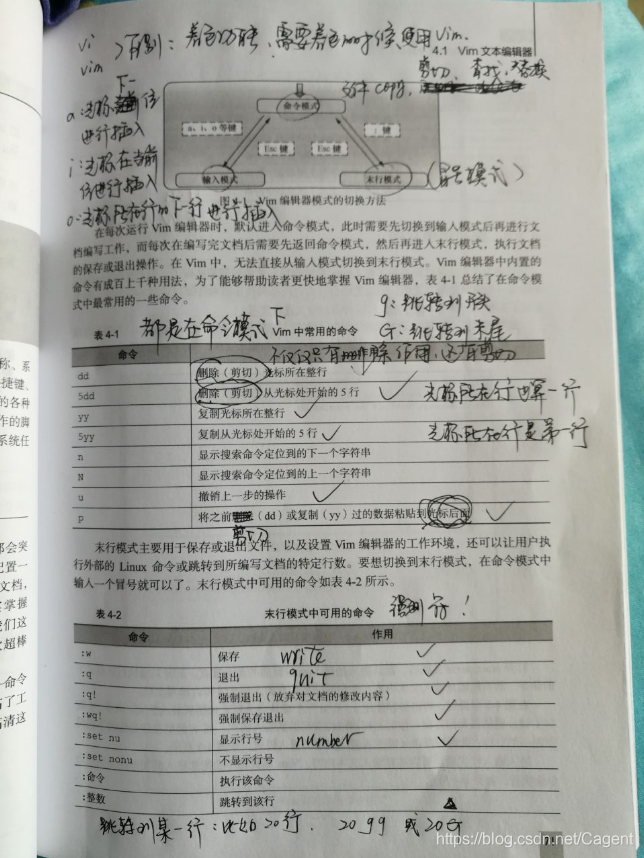 vi
vim
区别：
需要
时候使用Vim.
4.1 Vim 文本编辑器
剪切、查找、替换
命令模式
a、i、o 等键
: 键
Esc 键
Esc 键
输入模式
末行模式
a: 光标下一位
进行插入
i: 光标在当前
位进行插入
o: 光标所在行的下一行进行插入
Vim 编辑器模式的切换方法
在每次运行 Vim 编辑器时，默认进入命令模式，此时需要先切换到输入模式后再进行文
档编写工作，而每次在编写完文档后需要先返回命令模式，然后再进入末行模式，执行文档
的保存或退出操作。在 Vim 中，无法直接从输入模式切换到末行模式。Vim 编辑器中内置的
命令有成百上千种用法，为了能够帮助读者更快地掌握 Vim 编辑器，表 4-1 总结了在命令模
式中最常用的一些命令。
g: 跳转到开头
G: 跳转到末尾
表 4-1
都是在命令模式下
Vim 中常用的命令
不仅仅只有删除作用，还有剪切
命令
dd
删除（剪切）光标所在整行
5dd
删除（剪切）从光标处开始的 5 行
光标所在行也算一行
yy
复制光标所在整行
5yy
复制从光标处开始的 5 行
光标所在行是第一行
n
显示搜索命令定位到的下一个字符串
N
显示搜索命令定位到的上一个字符串
u
撤销上一步的操作
p
将之前删除（dd）或复制（yy）过的数据粘贴到光标后面
剪切
末行模式主要用于保存或退出文件，以及设置 Vim 编辑器的工作环境，还可以让用户执
行外部的 Linux 命令或跳转到所编写文档的特定行数。要想切换到末行模式，在命令模式中
输入一个冒号就可以了。末行模式中可用的命令如表 4-2 所示。
表 4-2
末行模式中可用的命令
命令
作用
:w
保存
write
:q
退出
quit
:q!
强制退出（放弃对文档的修改内容）
:wq!
强制保存退出
:set nu
显示行号
number
:set nonu
不显示行号
:命令
执行该命令
:整数
跳转到该行
跳转到某一行：比如20行. 20gg 或20G
称、系
捷键、
的各种
作的脚
系统任
都会突
配置一
文档，
掌握
我们这
超棒
命令
了工
清这
https://blog.csdn.net/Cagent